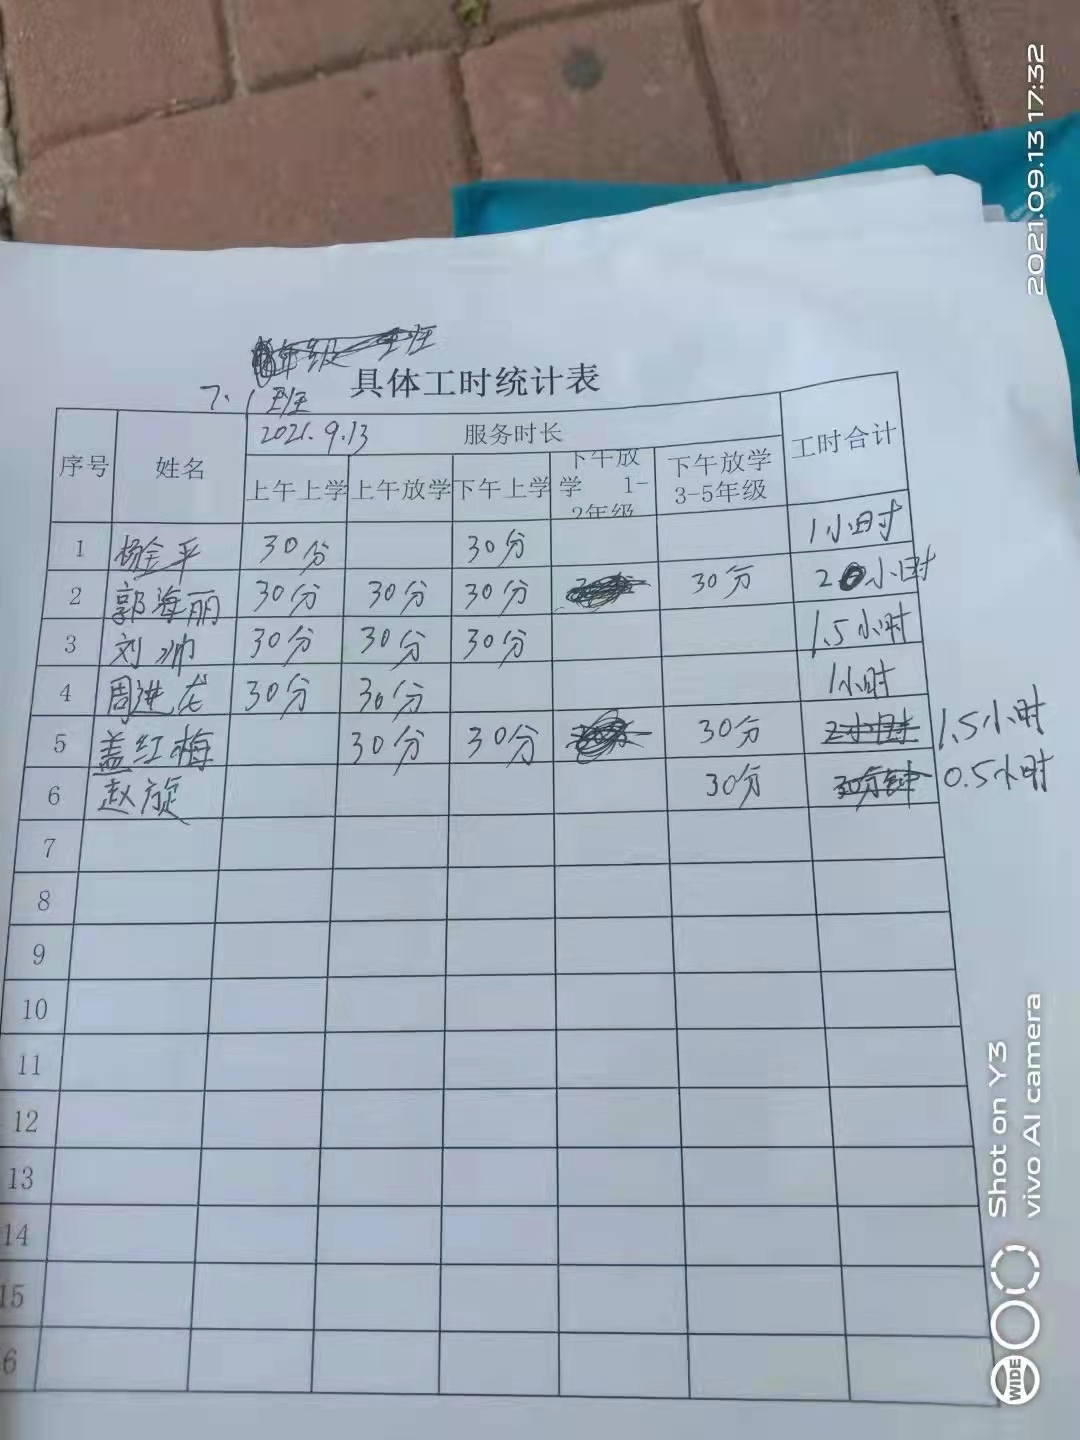 7.1班
具体工时统计表
序号 姓名 2021.9.13 服务时长 工时合计
上午上学 上午放学 下午上学 下午放学 1-2年级 下午放学 3-5年级
1 杨金平 30分 30分 1小时
2 郭海丽 30分 30分 30分 30分 2小时
3 刘帅 30分 30分 30分 1.5小时
4 周进龙 30分 30分 1小时
5 盖红梅 30分 30分 30分 2小时 1.5小时
6 赵旋 30分 30分钟 0.5小时
7
8
9
10
11
12
13
14
15
6
2021.09.13 17:32
Shot on Y3
vivo AI camera
WIDE